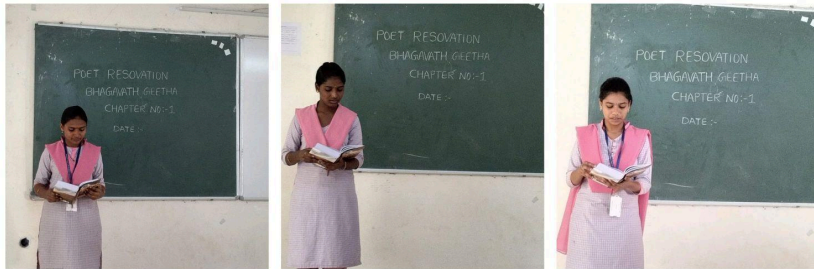 POET RESOVATION
BHAGAVATH GEETHA
CHAPTER NO:-1
DATE:-
POET RESOVATION
BHAGAVATH GEETHA
CHAPTER NO:-1
DATE:-
POET RESOVATION
BHAGAVATH GEETHA
CHAPTER NO:-1
DATE:-